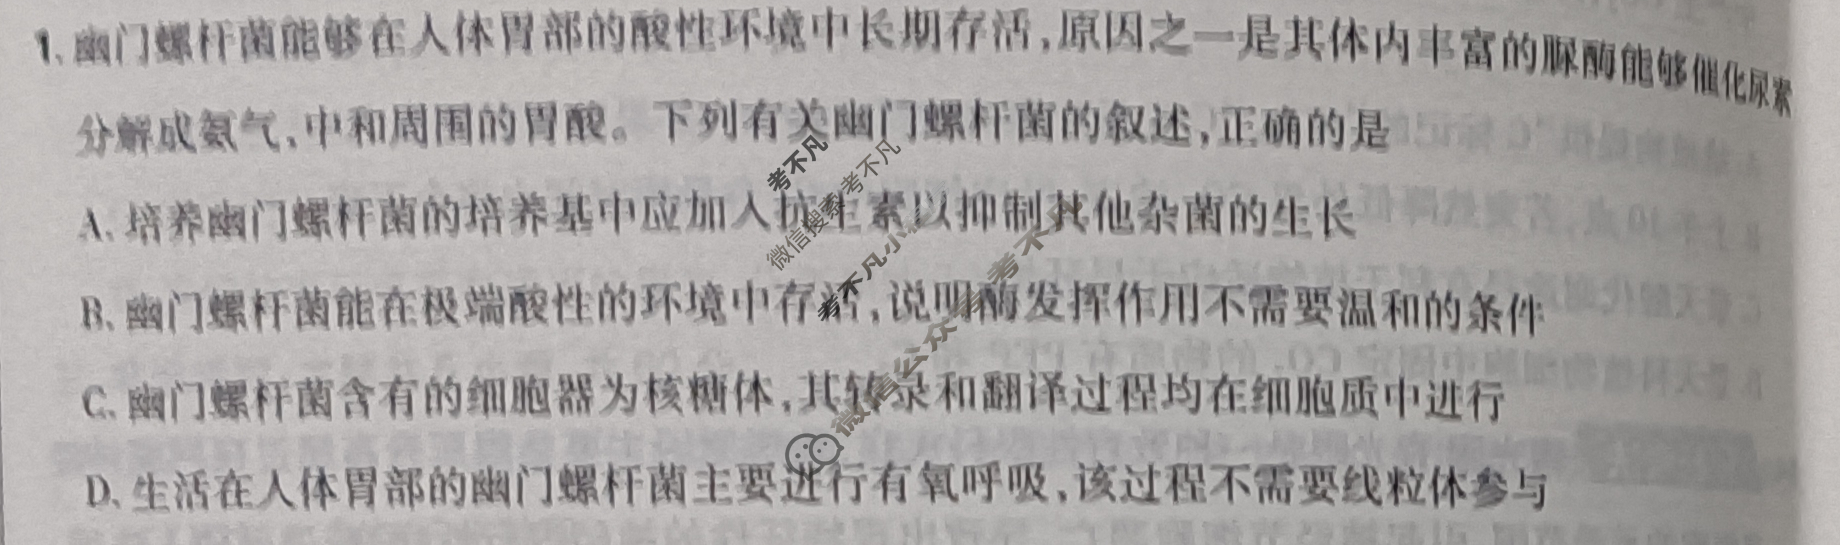 1. 幽门螺杆菌能够在人体胃部的酸性环境中长期存活,原因之一是其体内丰富的脲酶能够催化尿素
分解成氨气,中和周围的胃酸。下列有关幽门螺杆菌的叙述,正确的是
A. 培养幽门螺杆菌的培养基中应加入抗生素以抑制其他杂菌的生长
B. 幽门螺杆菌能在极端酸性的环境中存活,说明酶发挥作用不需要温和的条件
C. 幽门螺杆菌含有的细胞器为核糖体,其转录和翻译过程均在细胞质中进行
D. 生活在人体胃部的幽门螺杆菌主要进行有氧呼吸,该过程不需要线粒体参与
考不凡
微信搜索 考不凡
考不凡小
微信公众 考不凡